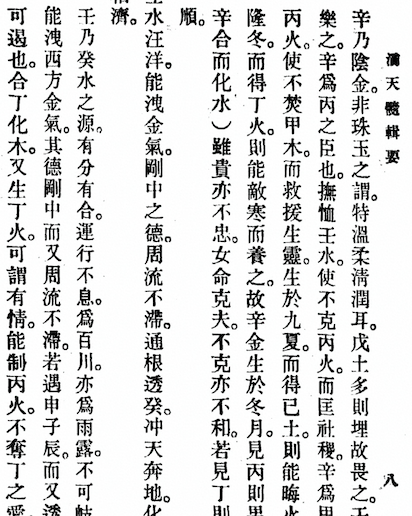 滴天髓輯要
八
辛乃陰金。非珠玉之謂。特溫柔淸潤耳。戊土多則埋。故畏之。壬
樂之。辛爲丙之臣也。撫恤壬水。使不克丙火。而匡社稷。辛爲甲
丙火。使不焚甲木。而救援生靈。生於九夏。而得已土。則能晦火
隆冬。而得丁火。則能敵寒而養之。故辛金生於冬月。見丙則男
辛合而化水）雖貴亦不忠。女命克夫。不克亦不和。若見丁則
順。
壬水汪洋。能洩金氣。剛中之德。周流不滯。通根透癸。冲天奔地。化
濟。
壬乃癸水之源。有分有合。運行不息。爲百川。亦爲雨露。不可岐
能洩西方金氣。其德剛中而又周流不滯。若遇申子辰。而又透
可遏也。合丁化木。又生丁火。可謂有情。能制丙火。不奪丁之愛